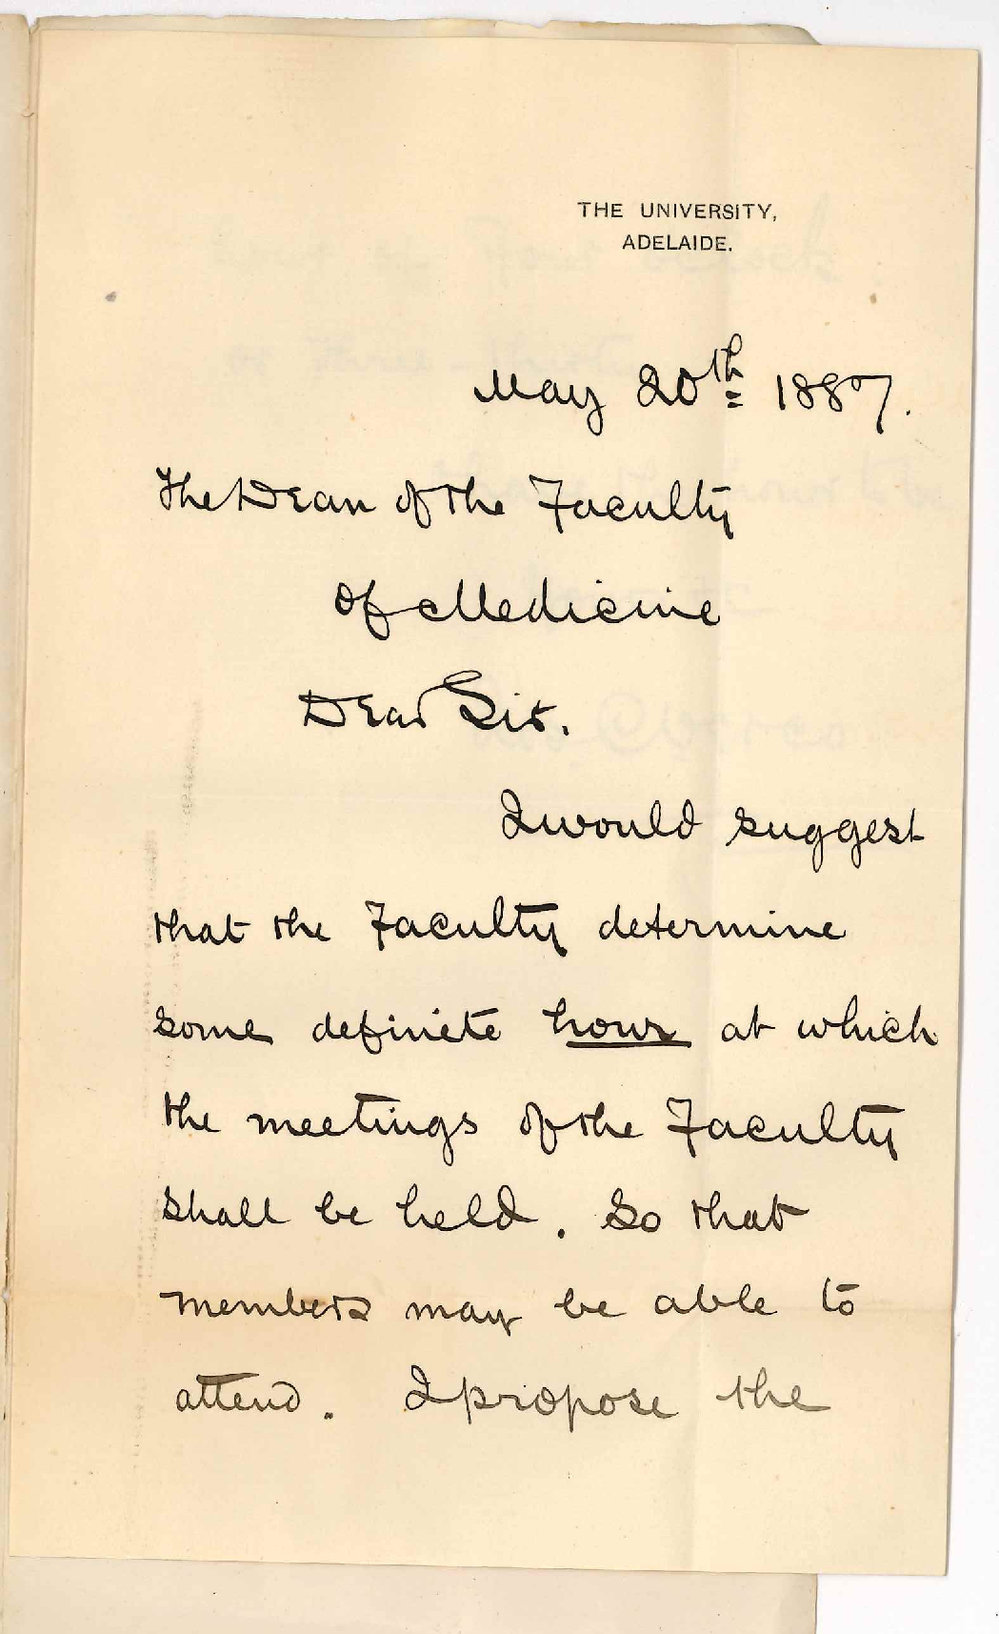 THE UNIVERSITY,
ADELAIDE.
May 20th 1887.
The Dean of the Faculty
of Medicine
Dear Sir.
I would suggest
that the Faculty determine
some definite hour at which
the meetings of the Faculty
shall be held. So that
members may be able to
attend. I propose the